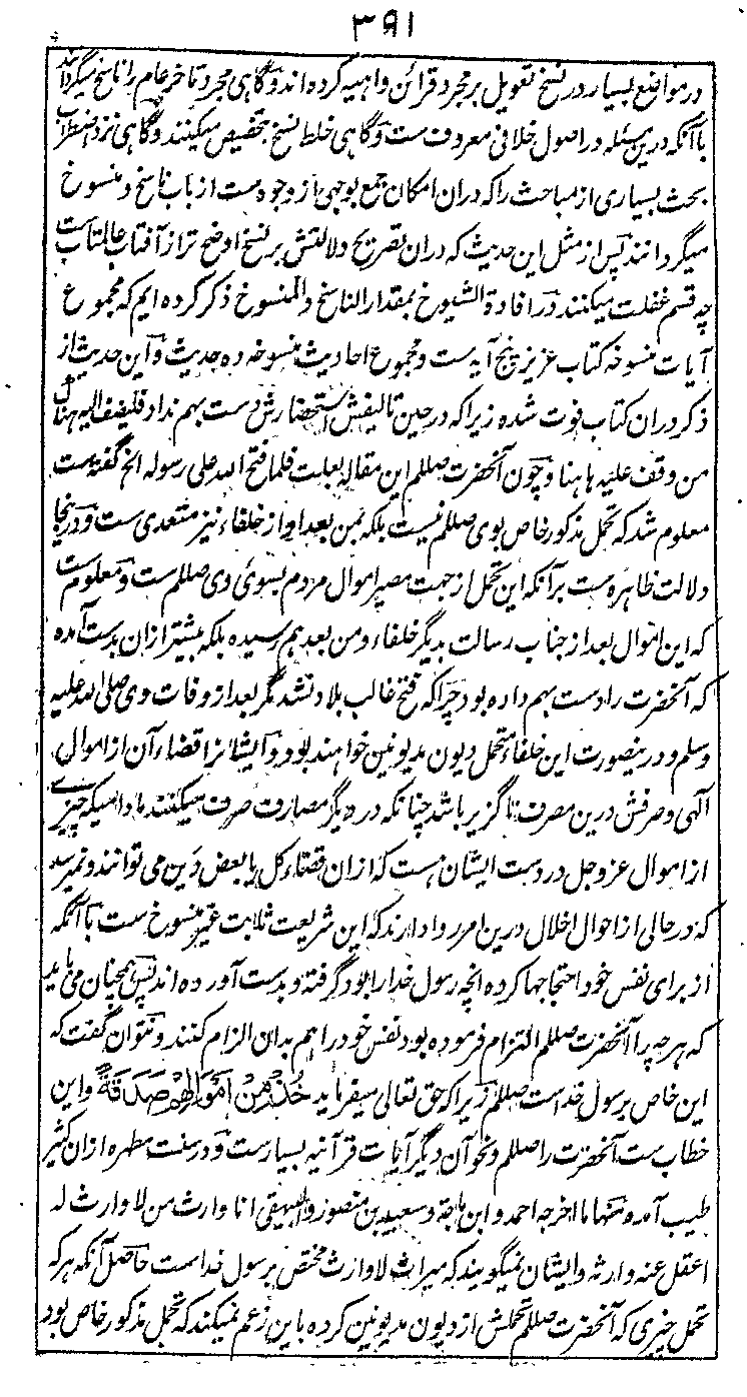 ٣٩١
در مواضع بسیار در نسخ تعویل بر مجرد قرائن واهیه کرده اند و گاهی مجرد تاخر عام را ناسخ میگردانند
با آنکه درین مسئله در اصول خلافی معروف ست و گاهی خلط نسخ بتخصیص میکنند و گاهی نزد اضطراب
بحث بسیاری از مباحث را که دران امکان جمع بوجهی از وجوه ست از باب ناسخ و منسوخ
میگردانند پس از مثل این حدیث که دران تصریح دلالتش بر نسخ اوضح تر از آفتاب عالمتاب ست
چه قسم غفلت میکنند در افادة الشیوخ بمقدار الناسخ و المنسوخ ذکر کرده ایم که مجموع
آیات منسوخه کتاب عزیز پنج آیه ست و مجموع احادیث منسوخه ده حدیث و این حدیث از
ذکر دران کتاب فوت شده زیرا که در حین تالیفش استحضارش دست بهم نداد فلیضف الیه هناک
من وقف علیه هاهنا و چون آنحضرت صللم این مقاله بعلت فلما فتح الله علی رسوله الخ گفته ست
معلوم شد که تحمل مذکور خاص بوی صللم نیست بلکه بمن بعد او از خلفاء نیز متعدی ست و درینجا
دلالت ظاهره ست بر آنکه این تحمل از جهت مصیر اموال مردم بسوئی وی صللم ست و معلوم ست
که این اموال بعد از جناب رسالت بدیگر خلفاء و من بعدهم رسیده بلکه بیشتر ازان بدست آمده
که آنحضرت را دست بهم داده بود چرا که فتح غالب بلاد نشد مگر بعد از وفات وی صلی الله علیه
وسلم و درینصورت این خلفاء متحمل دیون مدیونین خواهند بود و ایشانرا قضاء آن از اموال
الهی و صرفش درین مصرف ناگزیر باشد چنانکه در دیگر مصارف صرف میکنند مادامیکه چیزے
از اموال عز و جل در دست ایشان ست که ازان قضاء کل یا بعض دین می توانند و نمیرسد
که در حالی از احوال اخلال درین امر روا دارند که این شریعت ثابت غیر منسوخ ست با آنکه
از برای نفس خود احتجاجها کرده انچه رسول خدا را بود گرفته و بدست آورده اند پس همچنان می باید
که هر چه را آنحضرت صللم التزام فرموده بود نفس خود را هم بدان الزام کنند و نتوان گفت که
این خاص برسول خداست صللم زیرا که حق تعالی میفرماید خُذْ مِنْ أَمْوَالِهِمْ صَدَقَةً و این
خطاب ست آنحضرت را صللم و نحو آن دیگر آیات قرآنیه بسیارست و در سنت مطهره ازان کثیر
طیب آمده و منها ما اخرجه احمد و ابن ماجة و سعید بن منصور و البیهقی انا وارث من لا وارث له
اعقل عنه و ارثه و ایشان نمیگویند که میراث لاوارث مختص برسول خداست حاصل آنکه هر که
تحمل چیزی که آنحضرت صللم تحملش از دیون مدیونین کرده باین زعم نمیکند که تحمل مذکور خاص بود